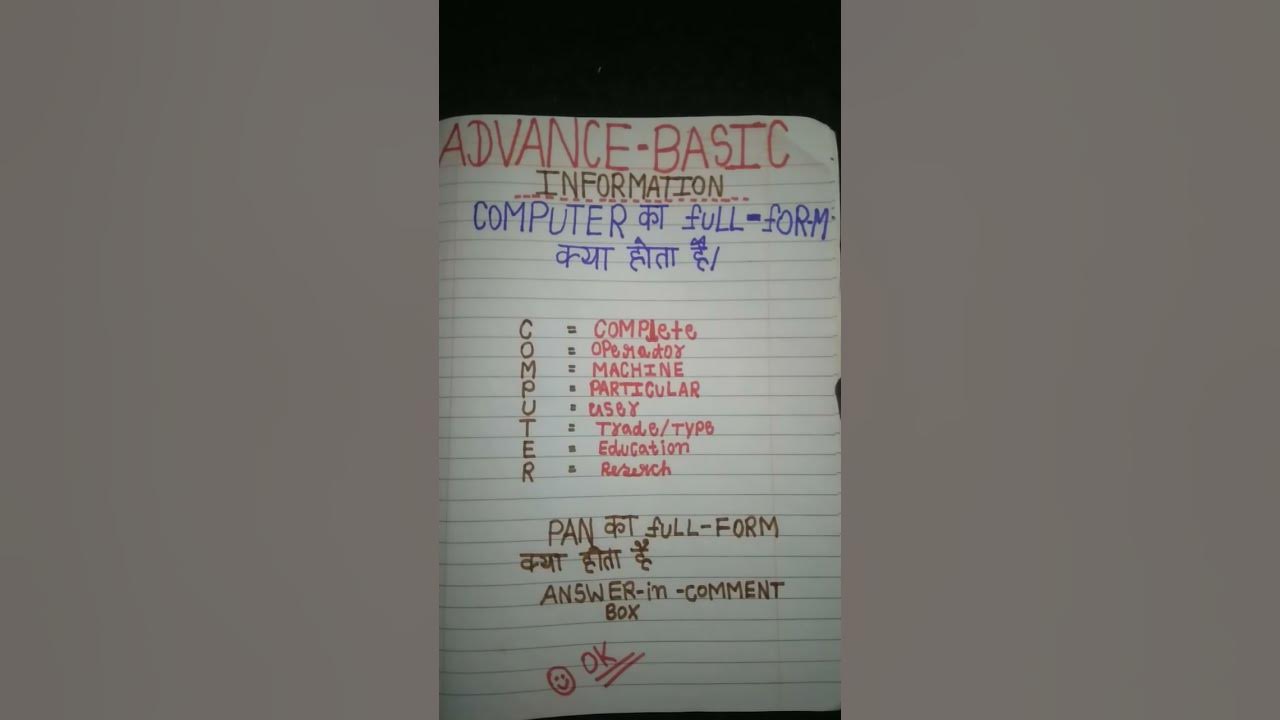 ADVANCE-BASIC
INFORMATION
COMPUTER का fULL-fORM
क्या होता है/
C = COMPlete
O = OPerador
M = MACHINE
P = PARTICULAR
U = user
T = Trade/TYPe
E = Education
R = Reserch
PAN का fULL-FORM
क्या होता है
ANSWER-in-COMMENT
BOX
OK